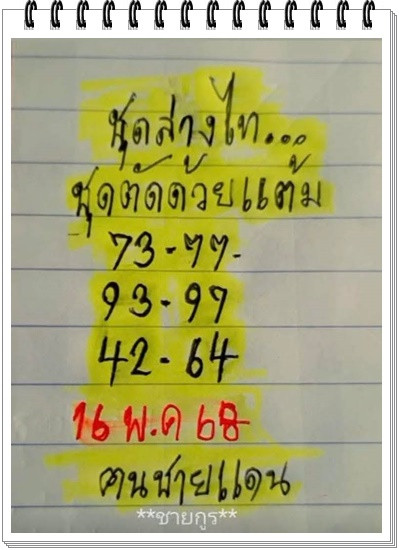 ชุดส่างไท...
ชุดตัดด้วยแต้ม
73-77-
93-97
42-64
16 พ.ค 68
ฅนชายแดน
**ชายกูร**